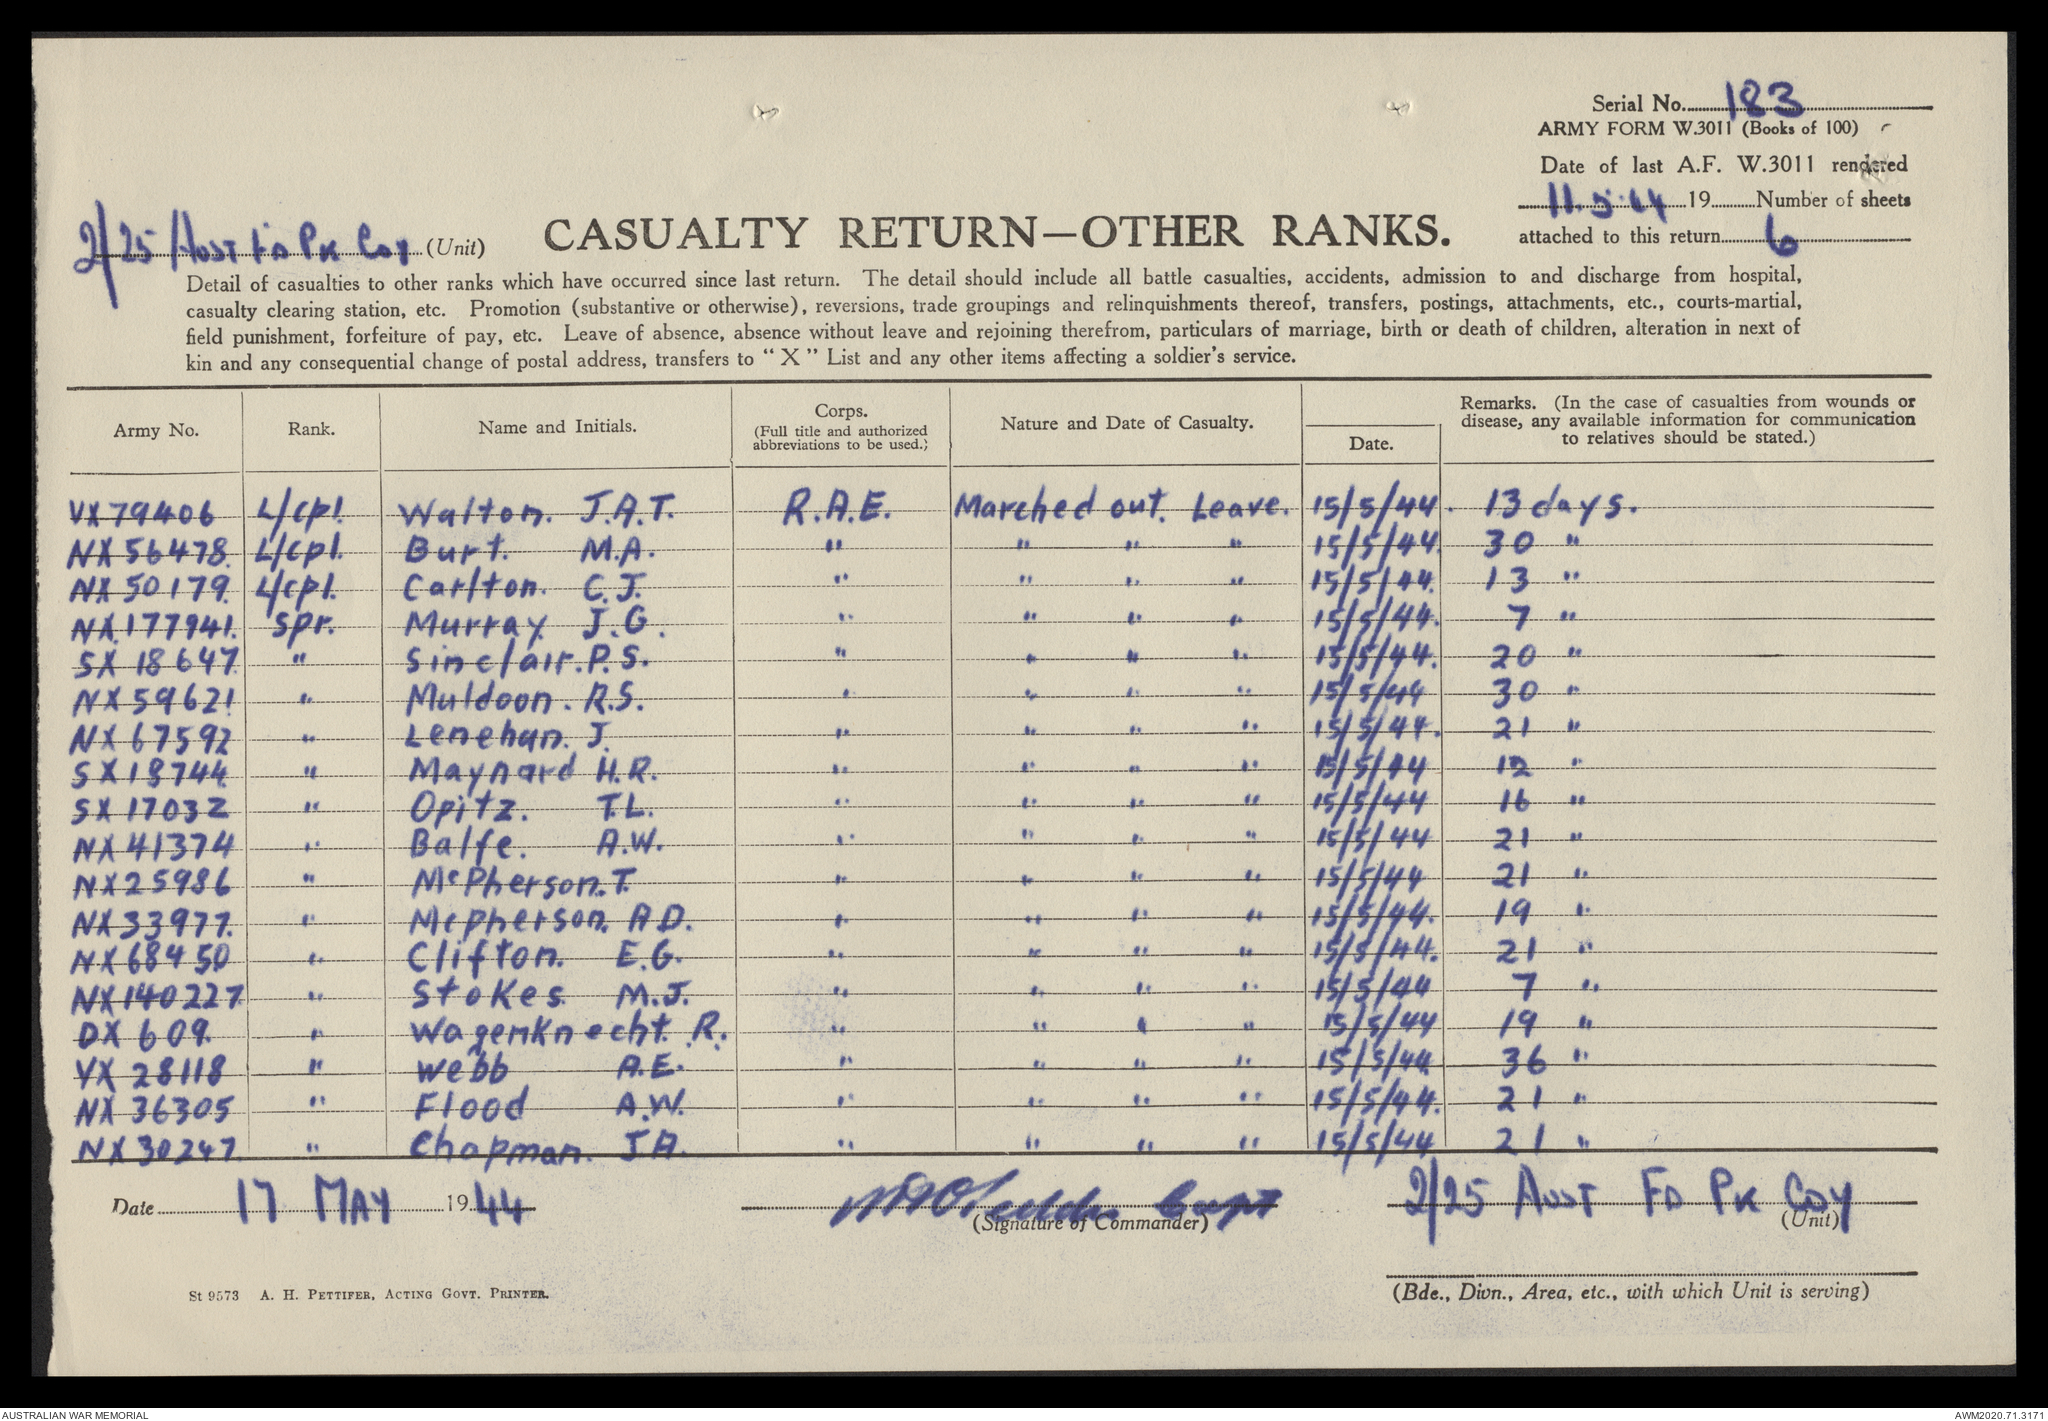 Serial No. 183
ARMY FORM W.3011 (Books of 100)
Date of last A.F. W.3011 rendered
11.5.44 19 Number of sheets
attached to this return 6
2/25 Aust Fd Pk Coy (Unit)
CASUALTY RETURN—OTHER RANKS.
Detail of casualties to other ranks which have occurred since last return. The detail should include all battle casualties, accidents, admission to and discharge from hospital,
casualty clearing station, etc. Promotion (substantive or otherwise), reversions, trade groupings and relinquishments thereof, transfers, postings, attachments, etc., courts-martial,
field punishment, forfeiture of pay, etc. Leave of absence, absence without leave and rejoining therefrom, particulars of marriage, birth or death of children, alteration in next of
kin and any consequential change of postal address, transfers to "X" List and any other items affecting a soldier's service.
Army No. Rank. Name and Initials. Corps. (Full title and authorized abbreviations to be used.) Nature and Date of Casualty. Date. Remarks. (In the case of casualties from wounds or disease, any available information for communication to relatives should be stated.)
VX 79406 L/cpl. Walton. J.A.T. R.A.E. Marched out. Leave. 15/5/44. 13 days.
NX 56478. L/cpl. Burt. M.A. " " " " 15/5/44. 30 "
NX 50179. L/cpl. Carlton. C.J. " " " " 15/5/44. 13 "
NX 177941. Spr. Murray J.G. " " " " 15/5/44. 7 "
SX 18647. " Sinclair. P.S. " " " " 15/5/44. 20 "
NX 59621 " Muldoon. R.S. " " " " 15/5/44 30 "
NX 67592 " Lenehan. J. " " " " 15/5/44. 21 "
SX 18744. " Maynard H.R. " " " " 15/5/44 12 "
SX 17032 " Opitz. T.L. " " " " 15/5/44 16 "
NX 41374 " Balfe. A.W. " " " " 15/5/44 21 "
NX 25986 " McPherson. T. " " " " 15/5/44 21 "
NX 33977. " Mcpherson. A.D. " " " " 15/5/44. 19 "
NX 68450 " Clifton. E.G. " " " " 15/5/44. 21 "
NX 140227. " Stokes. M.J. " " " " 15/5/44 7 "
DX 609. " Wagenknecht. R. " " " " 15/5/44 19 "
VX 28118 " Webb A.E. " " " " 15/5/44. 36 "
NX 36305 " Flood A.W. " " " " 15/5/44. 21 "
NX 30247. " Chapman. J.A. " " " " 15/5/44 21 "
Date 17 MAY 1944 Capt 2/25 Aust Fd Pk Coy
(Signature of Commander) (Unit)
St 9573 A. H. Pettifer, Acting Govt. Printer.
(Bde., Divn., Area, etc., with which Unit is serving)
AUSTRALIAN WAR MEMORIAL AWM2020.71.3171